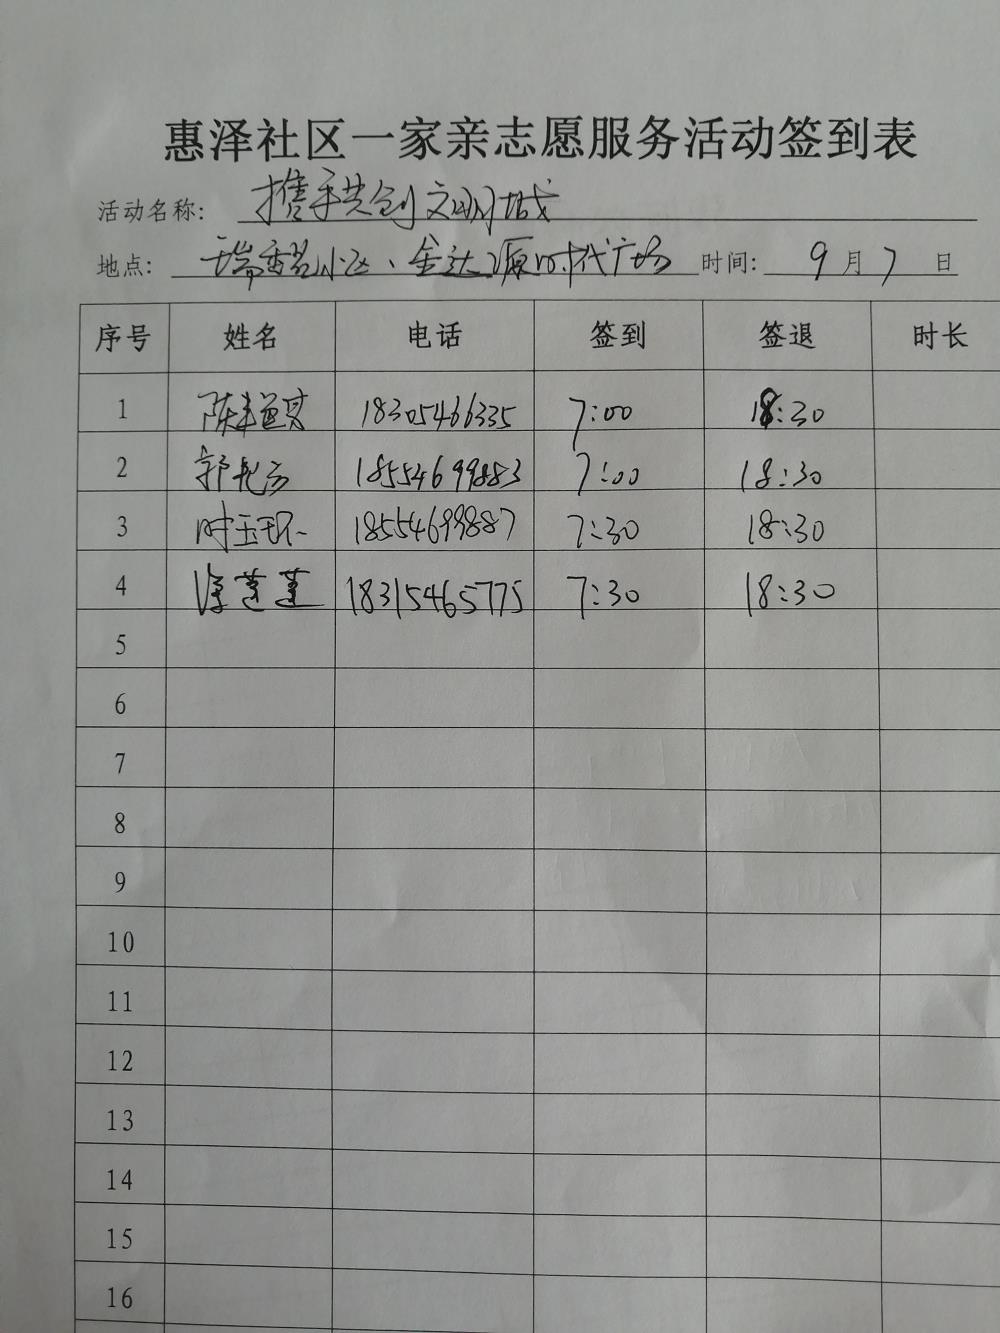 惠泽社区一家亲志愿服务活动签到表
活动名称: 携手共创文明城
地点: 瑞香苑小区、金达源时代广场 时间: 9月7日
序号 姓名 电话 签到 签退 时长
1 陈 18305466335 7:00 18:30
2 郭艳芳 18554699883 7:00 18:30
3 时玉环 18554699887 7:30 18:30
4 莲莲 18315465775 7:30 18:30
5
6
7
8
9
10
11
12
13
14
15
16